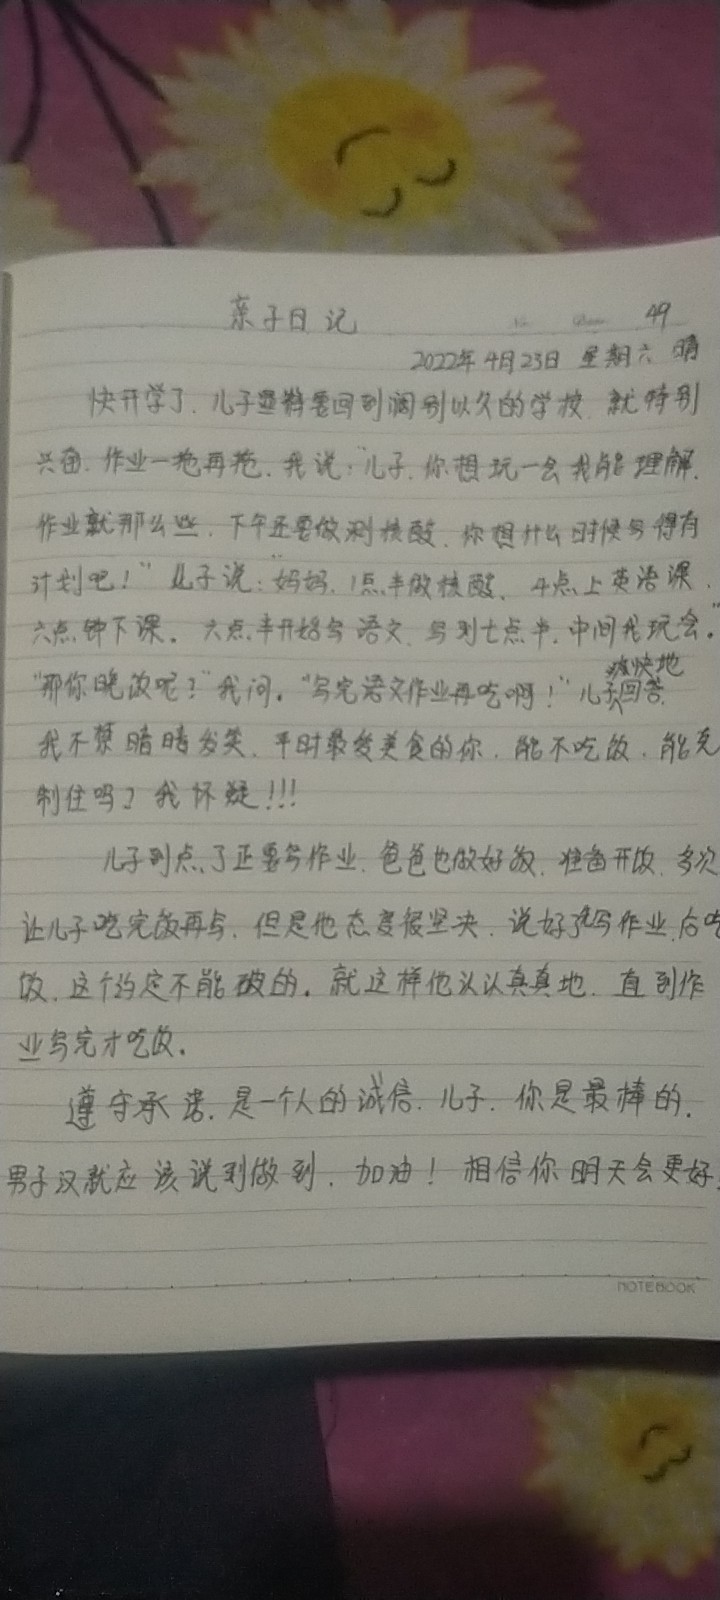 亲子日记 49
2022年4月23日 星期六 晴
快开学了,儿子要回到阔别以久的学校,就特别
兴奋,作业一拖再拖,我说:"儿子,你想玩一会我能理解,
作业就那么些,下午还要做测核酸,你想什么时候写得有
计划吧!"儿子说:"妈妈,1点半做核酸,4点上英语课,
六点钟下课。六点半开始写语文,写到七点半,中间我玩会。"
"那你晚饭呢?"我问。"写完语文作业再吃啊!"儿子爽快地回答
我不禁暗暗发笑,平时最爱美食的你,能不吃饭,能克
制住吗?我怀疑!!!
儿子到点了正要写作业,爸爸也做好饭,准备开饭,多次
让儿子吃完饭再写,但是他态度很坚决,说好了先写作业,后吃
饭,这个约定不能破的。就这样他认认真真地,直到作
业写完才吃饭。
遵守承诺,是一个人的诚信,儿子,你是最棒的,
男子汉就应该说到做到,加油!相信你明天会更好
NOTEBOOK